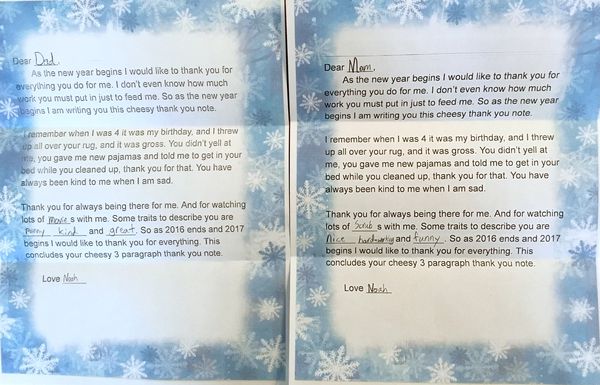 Dear Dad,
As the new year begins I would like to thank you for
everything you do for me. I don't even know how much
work you must put in just to feed me. So as the new year
begins I am writing you this cheesy thank you note.
I remember when I was 4 it was my birthday, and I threw
up all over your rug, and it was gross. You didn't yell at
me, you gave me new pajamas and told me to get in your
bed while you cleaned up, thank you for that. You have
always been kind to me when I am sad.
Thank you for always being there for me. And for watching
lots of movie s with me. Some traits to describe you are
funny kind and great. So as 2016 ends and 2017
begins I would like to thank you for everything. This
concludes your cheesy 3 paragraph thank you note.
Love Noah
Dear Mom,
As the new year begins I would like to thank you for
everything you do for me. I don't even know how much
work you must put in just to feed me. So as the new year
begins I am writing you this cheesy thank you note.
I remember when I was 4 it was my birthday, and I threw
up all over your rug, and it was gross. You didn't yell at
me, you gave me new pajamas and told me to get in your
bed while you cleaned up, thank you for that. You have
always been kind to me when I am sad.
Thank you for always being there for me. And for watching
lots of Scrub s with me. Some traits to describe you are
Nice hardworking and funny. So as 2016 ends and 2017
begins I would like to thank you for everything. This
concludes your cheesy 3 paragraph thank you note.
Love Noah